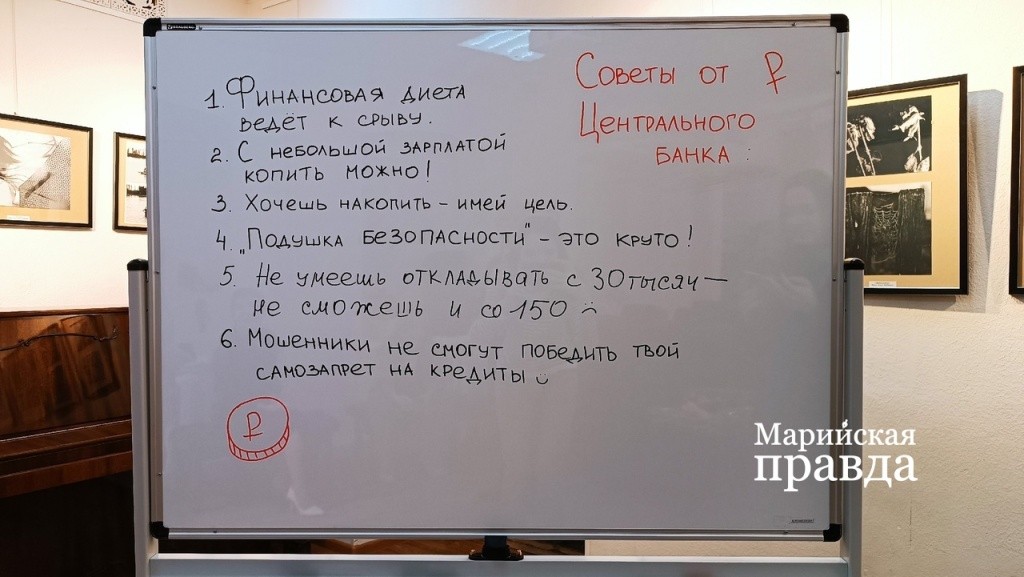 Советы от ₽
Центрального
банка:
1. Финансовая диета
ведёт к срыву.
2. С небольшой зарплатой
копить можно!
3. Хочешь накопить – имей цель.
4. „Подушка безопасности" – это круто!
5. Не умеешь откладывать с 30 тысяч —
не сможешь и со 150 :(
6. Мошенники не смогут победить твой
самозапрет на кредиты :)
₽
Марийская
правда